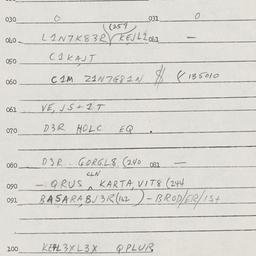 030 0 031 0
(257
040 L1N7K83R KEJL2 041 —
050 C1KAJT
060 C1M Z1N7E81N $ 135010
061 VE, JS+1T
070 D3R HOLC EQ .
080 D3R GORGL8, (240 081 —
CLN
090 — QRUS KARTA, VIT8 (244
091 BASARABJ3R (162 ) — BROD/ER/1S+
100 L3XL3X QPLUR